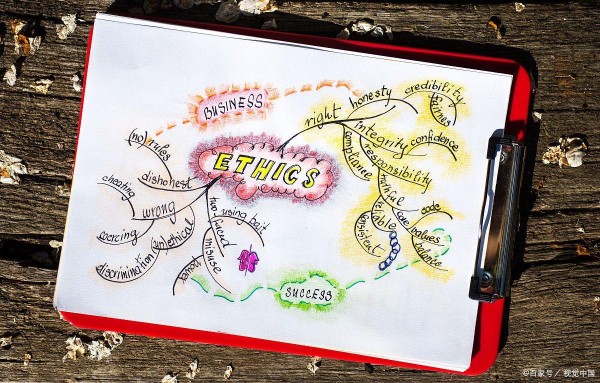 BUSINESS
ETHICS
right
honesty
credibility
fairness
integrity
confidence
compliance
responsibility
care
code
values
balance
consistent
(no) rules
dishonest
cheating
wrong
coercing
(un)ethical
discrimination
two faced
using bait
misuse
SUCCESS
©百家号／视觉中国